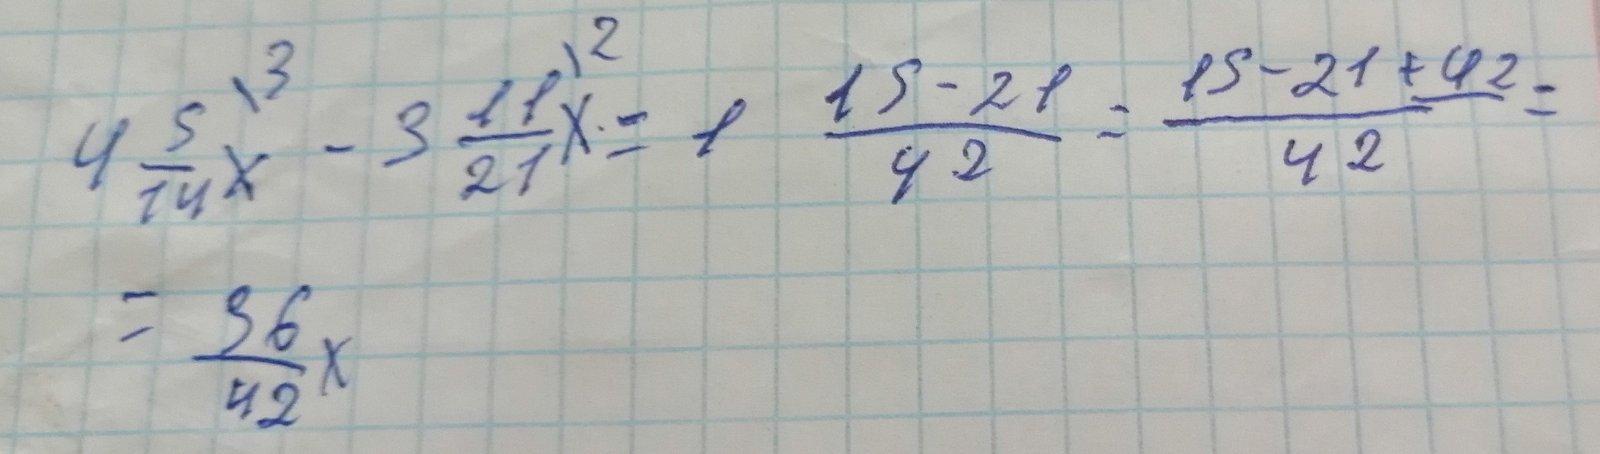 4 5/14 x \3 - 3 11/21 x \2 = 1 15-21/42 = 15-21+42/42 =
= 36/42 x